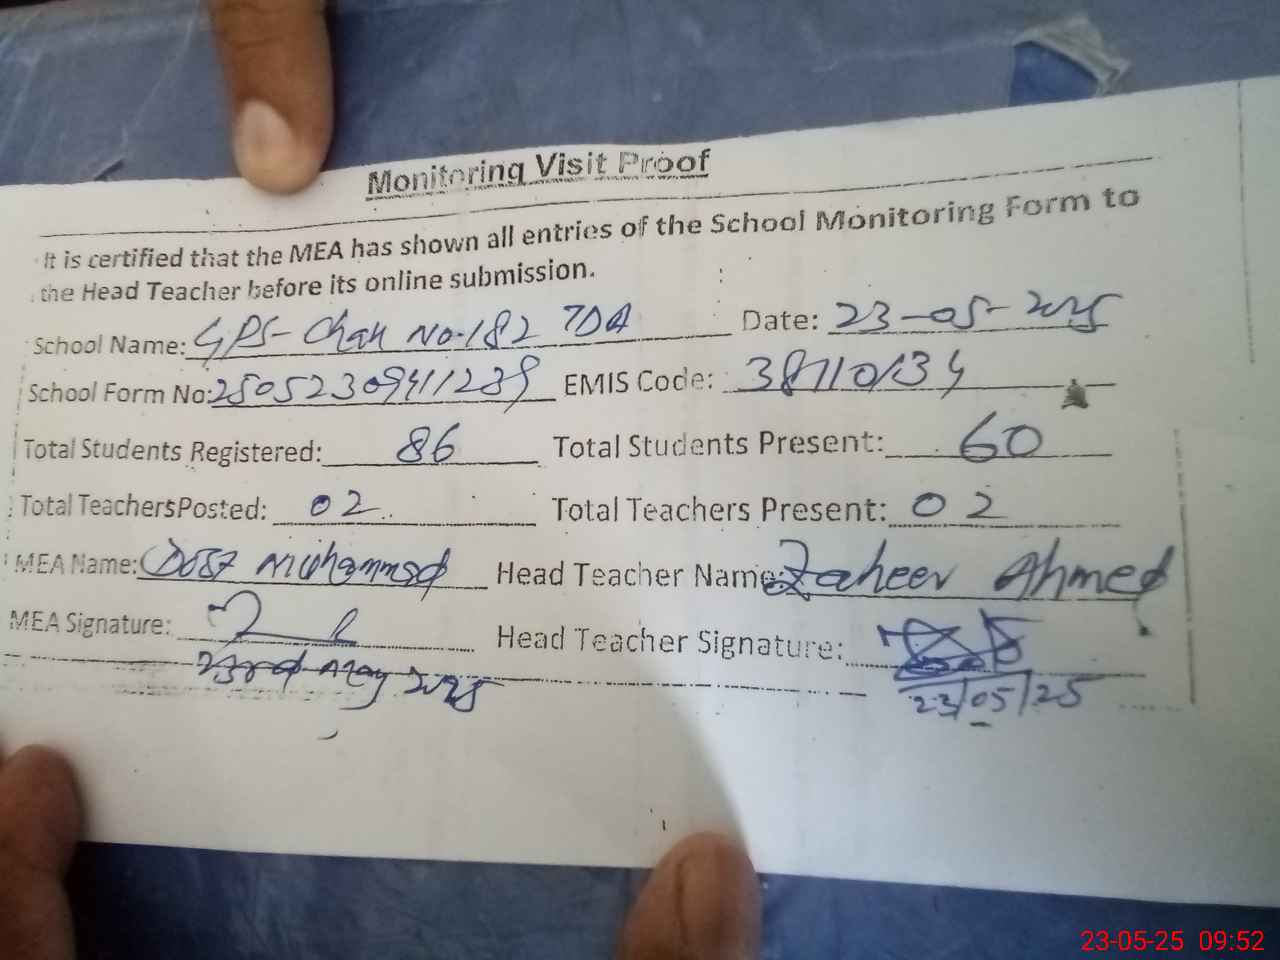 Monitoring Visit Proof
It is certified that the MEA has shown all entries of the School Monitoring Form to
the Head Teacher before its online submission.
School Name: GPS- Chak No.182 TDA Date: 23-05-2025
School Form No: 25052309411239 EMIS Code: 38110134
Total Students Registered: 86 Total Students Present: 60
Total Teachers Posted: 02 Total Teachers Present: 02
MEA Name: Dost Muhammad Head Teacher Name: Zaheer Ahmed
MEA Signature: Head Teacher Signature:
23rd May 2025 23/05/25
23-05-25 09:52